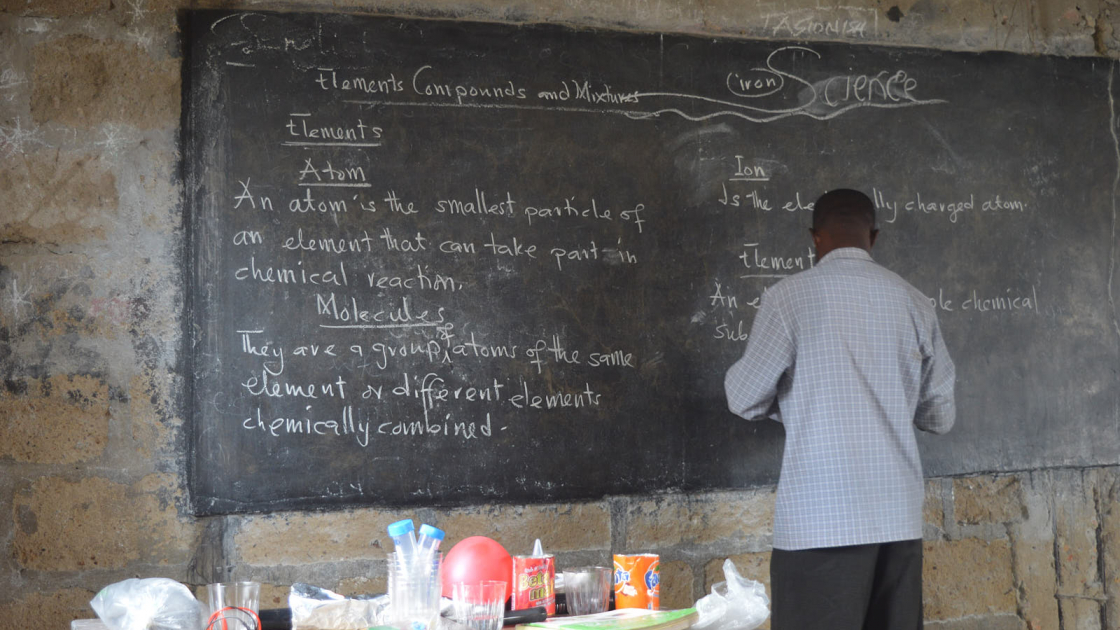 TASIONISH
Elements Compounds and Mixtures
(iron) Science
Elements
Atom
An atom is the smallest particle of
an element that can take part in
chemical reaction.
Molecules
They are a group of atoms of the same
element or different elements
chemically combined.
Ion
Is the ele lly charged atom.
Element
An el ple chemical
sub